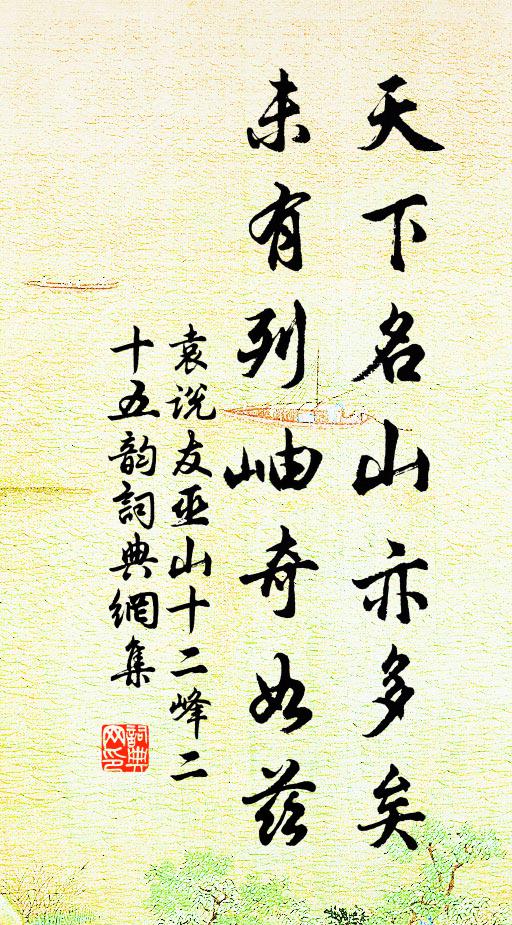 天下名山亦多矣
未有列岫奇如茲
袁説友巫山十二峰二
十五韵詞典網集
詞典
网印